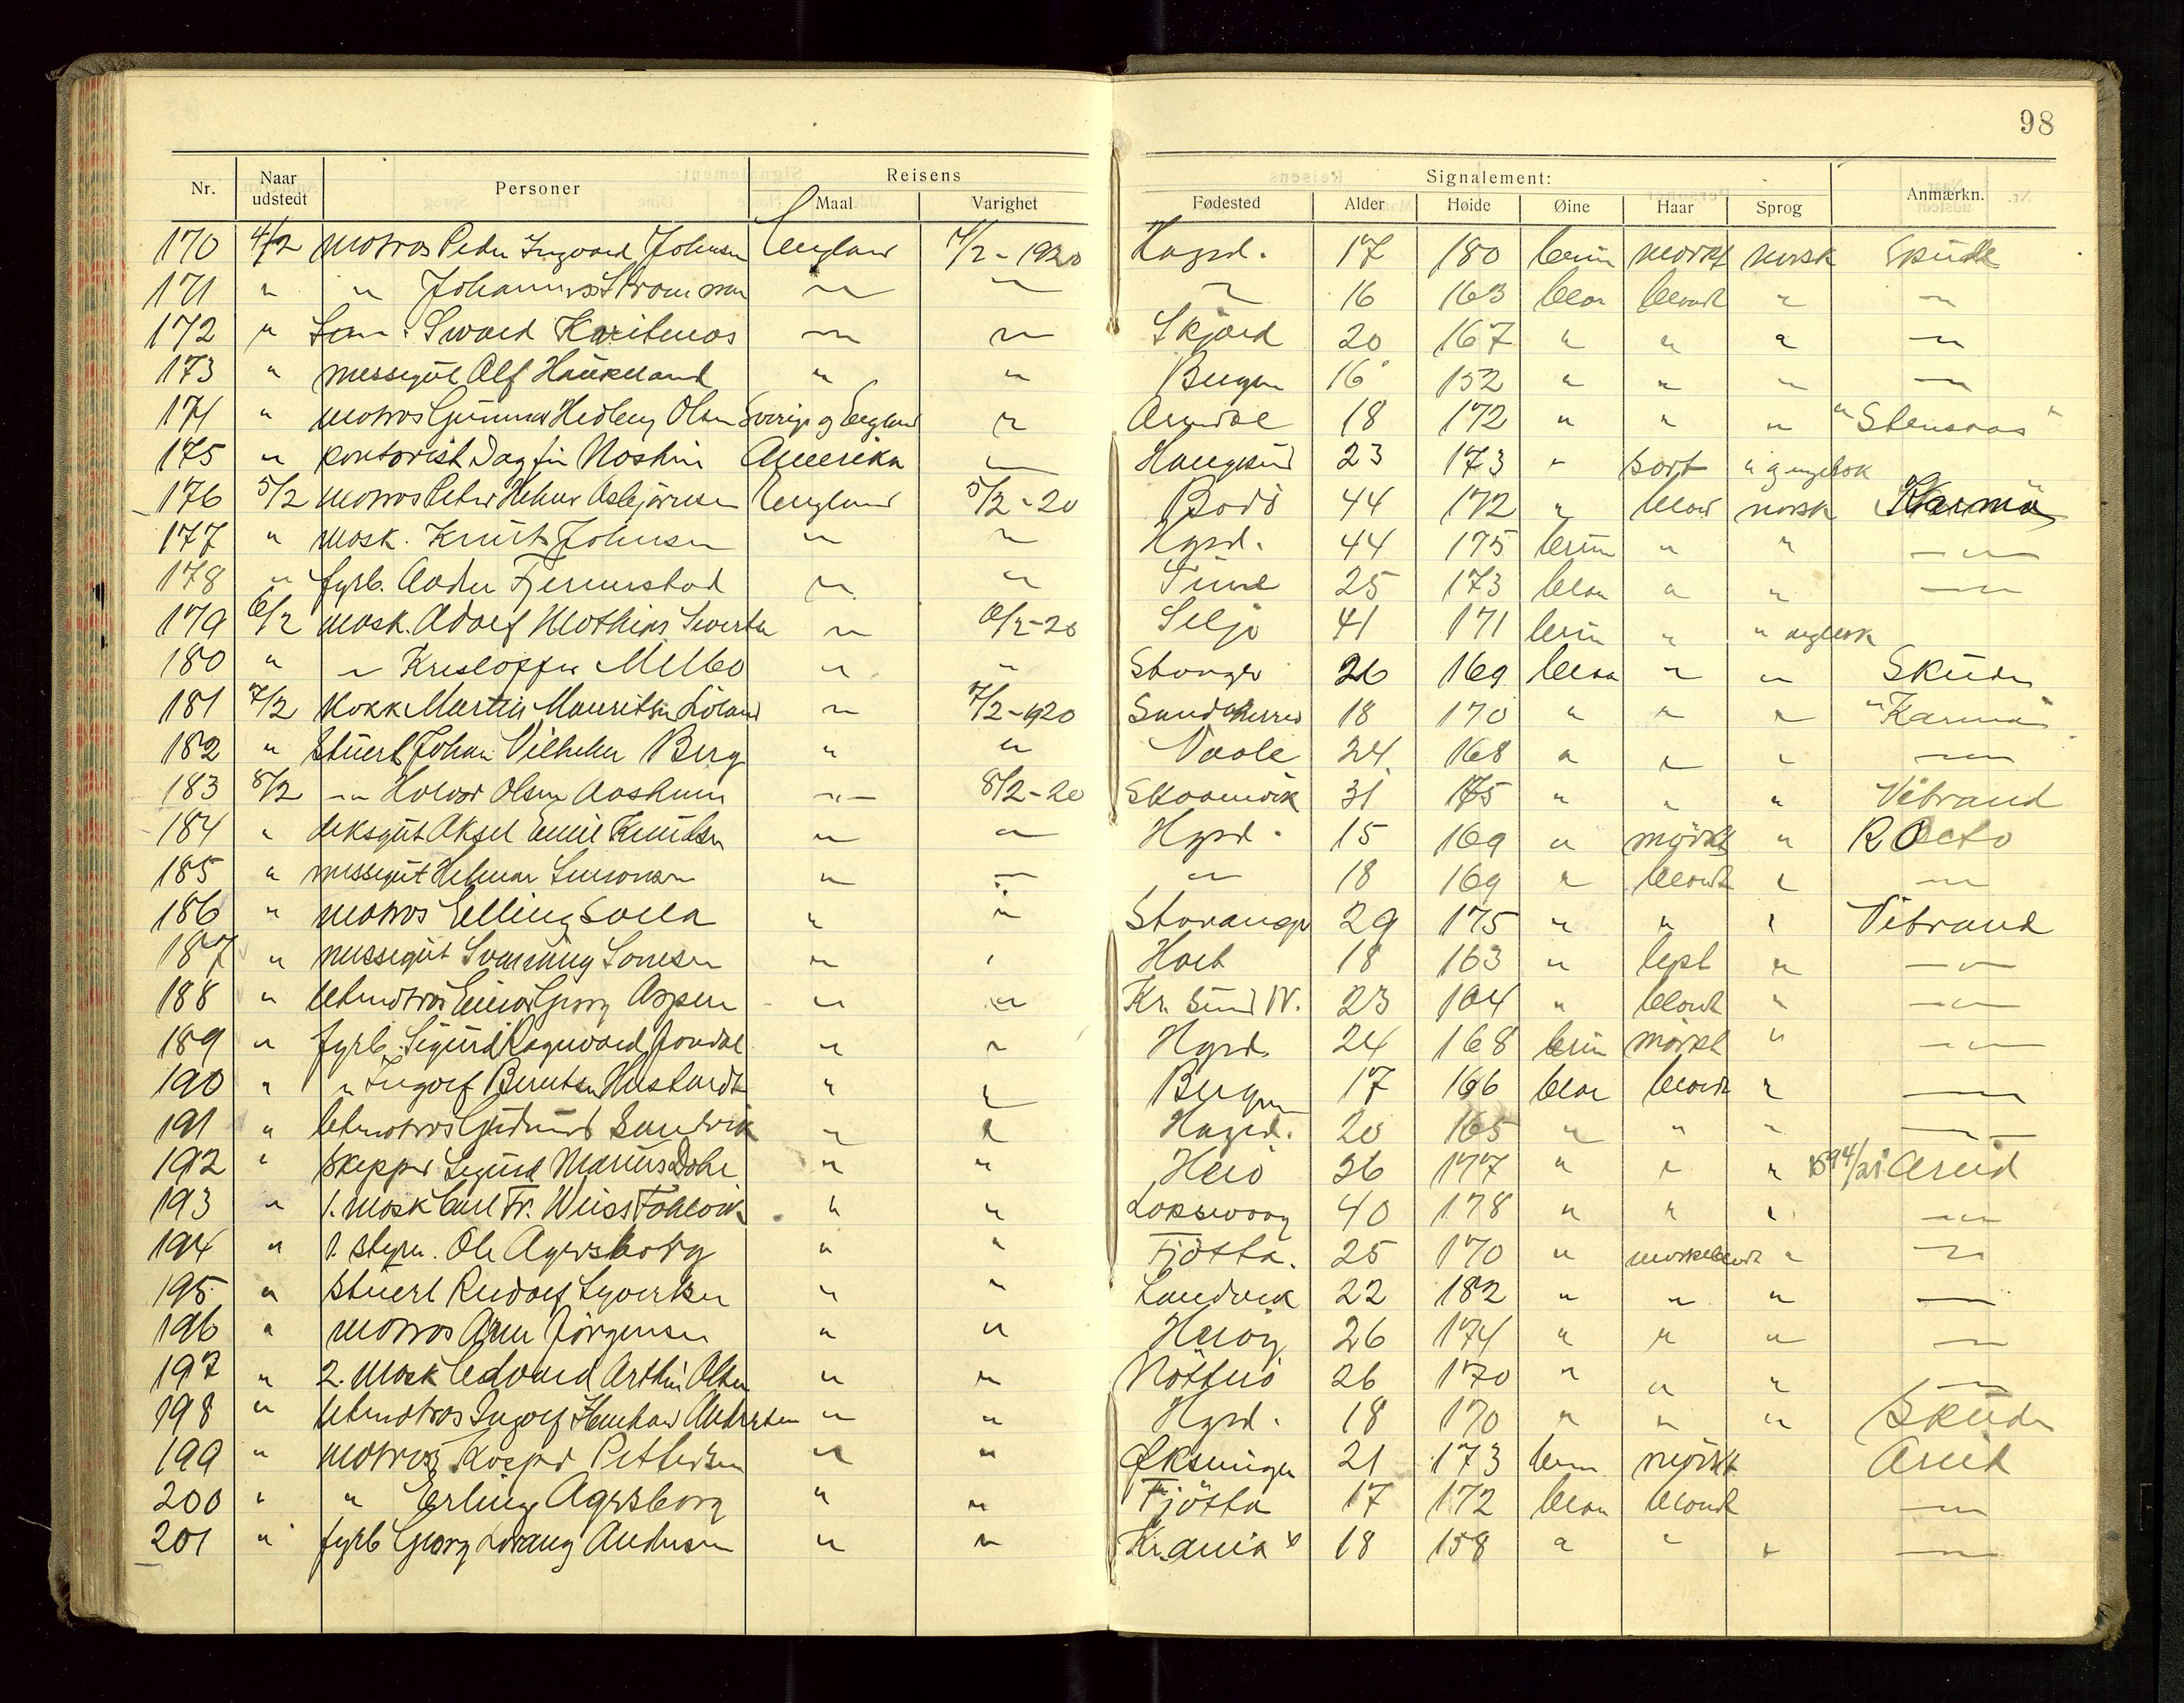 98
Nr. Naar udstedt Personer Reisens Maal Varighet Signalement: Fødested Alder Høide Øine Haar Sprog Anmærkn.
170 4/2 matros Peder Ingvard Johnsen England 4/2-1920 Haugsd. 17 180 brun mørkt norsk Skude
171 " " Johannes " " " 16 163 blaa blondt " "
172 " Sivard " " Skjold 20 167 " " " "
173 " messegut Alf Haukeland " " Bergen 16 152 " " " "
174 " matros Gunnar Hedley Olsen Sverige og England " Arendal 18 172 " " " "Stensaas"
175 " kontorist Dagfin Amerika " Haugesund 23 173 " sort " og engelsk
176 5/2 matros Peter Asbjørnsen England 5/2-20 Bodö 44 172 " blond norsk Karmö
177 " mask. Knut Johnsen " " Hgsd. 44 175 brun " " "
178 " fyrb. " " Tune 25 173 blaa " " "
179 6/2 mask. Adolf Mathias " 6/2-20 Seljo 41 171 brun " " engelsk
180 " " Kristoffer Melbo " " Stavanger 26 169 blaa " " Skude
181 7/2 kokk Martin Mauritsen Löland " 7/2-1920 Sandeherred 18 170 " " " "Karmö"
182 " Stuert Johan Vilhelm Berg " " Vaale 24 168 " " " "
183 8/2 " Olsen " 8/2-20 Skaanevik 31 175 " " " Vibrand
184 " deksgut Aksel Emil Knutsen " " Hgsd. 15 169 " mørkt " R
185 " messegut Helmer " " " 18 169 " blondt " "
186 " matros Elling Solla " " Stavanger 29 175 " " " Vibrand
187 " messegut " " 18 163 " lyst " "
188 " letmatros Einar Georg Aspen " " Kr. Sund N. 23 164 " blondt " "
189 " fyrb. Sigurd Ragnvard Jondal " " Hgsd. 24 168 brun mørkt " "
190 " " Ingolf Berntsen " " Bergen 17 166 blaa blondt " "
191 " letmatros Gudmund Sandvik " " Haugsd. 20 165 " " " "
192 " skipper Sigurd Marius Dahl " " 36 177 " " " Arild
193 " 1. mask Carl Fr. Weiss " " 40 178 " " " "
194 " 1. styrm. Ole Agersborg " " Tjøtta. 25 170 " mørkeblondt " "
195 " stuert Rudolf Syvertsen " " Landvik 22 182 " " " "
196 " matros Arne Jörgensen " " Heröy 26 174 " " " "
197 " 2. mask Edvard Arthur Olsen " " Nötterö 26 170 " " " "
198 " letmatros Ingolf Andersen " " Hgsd. 18 170 " " " Skude
199 " matros Kasper Pettersen " " 21 173 brun mørkt Arild
200 " " Erling Agersborg " " Tjøtta 17 172 blaa blondt "
201 " fyrb Georg Andersen " " Kr.ania 18 158 " " " "